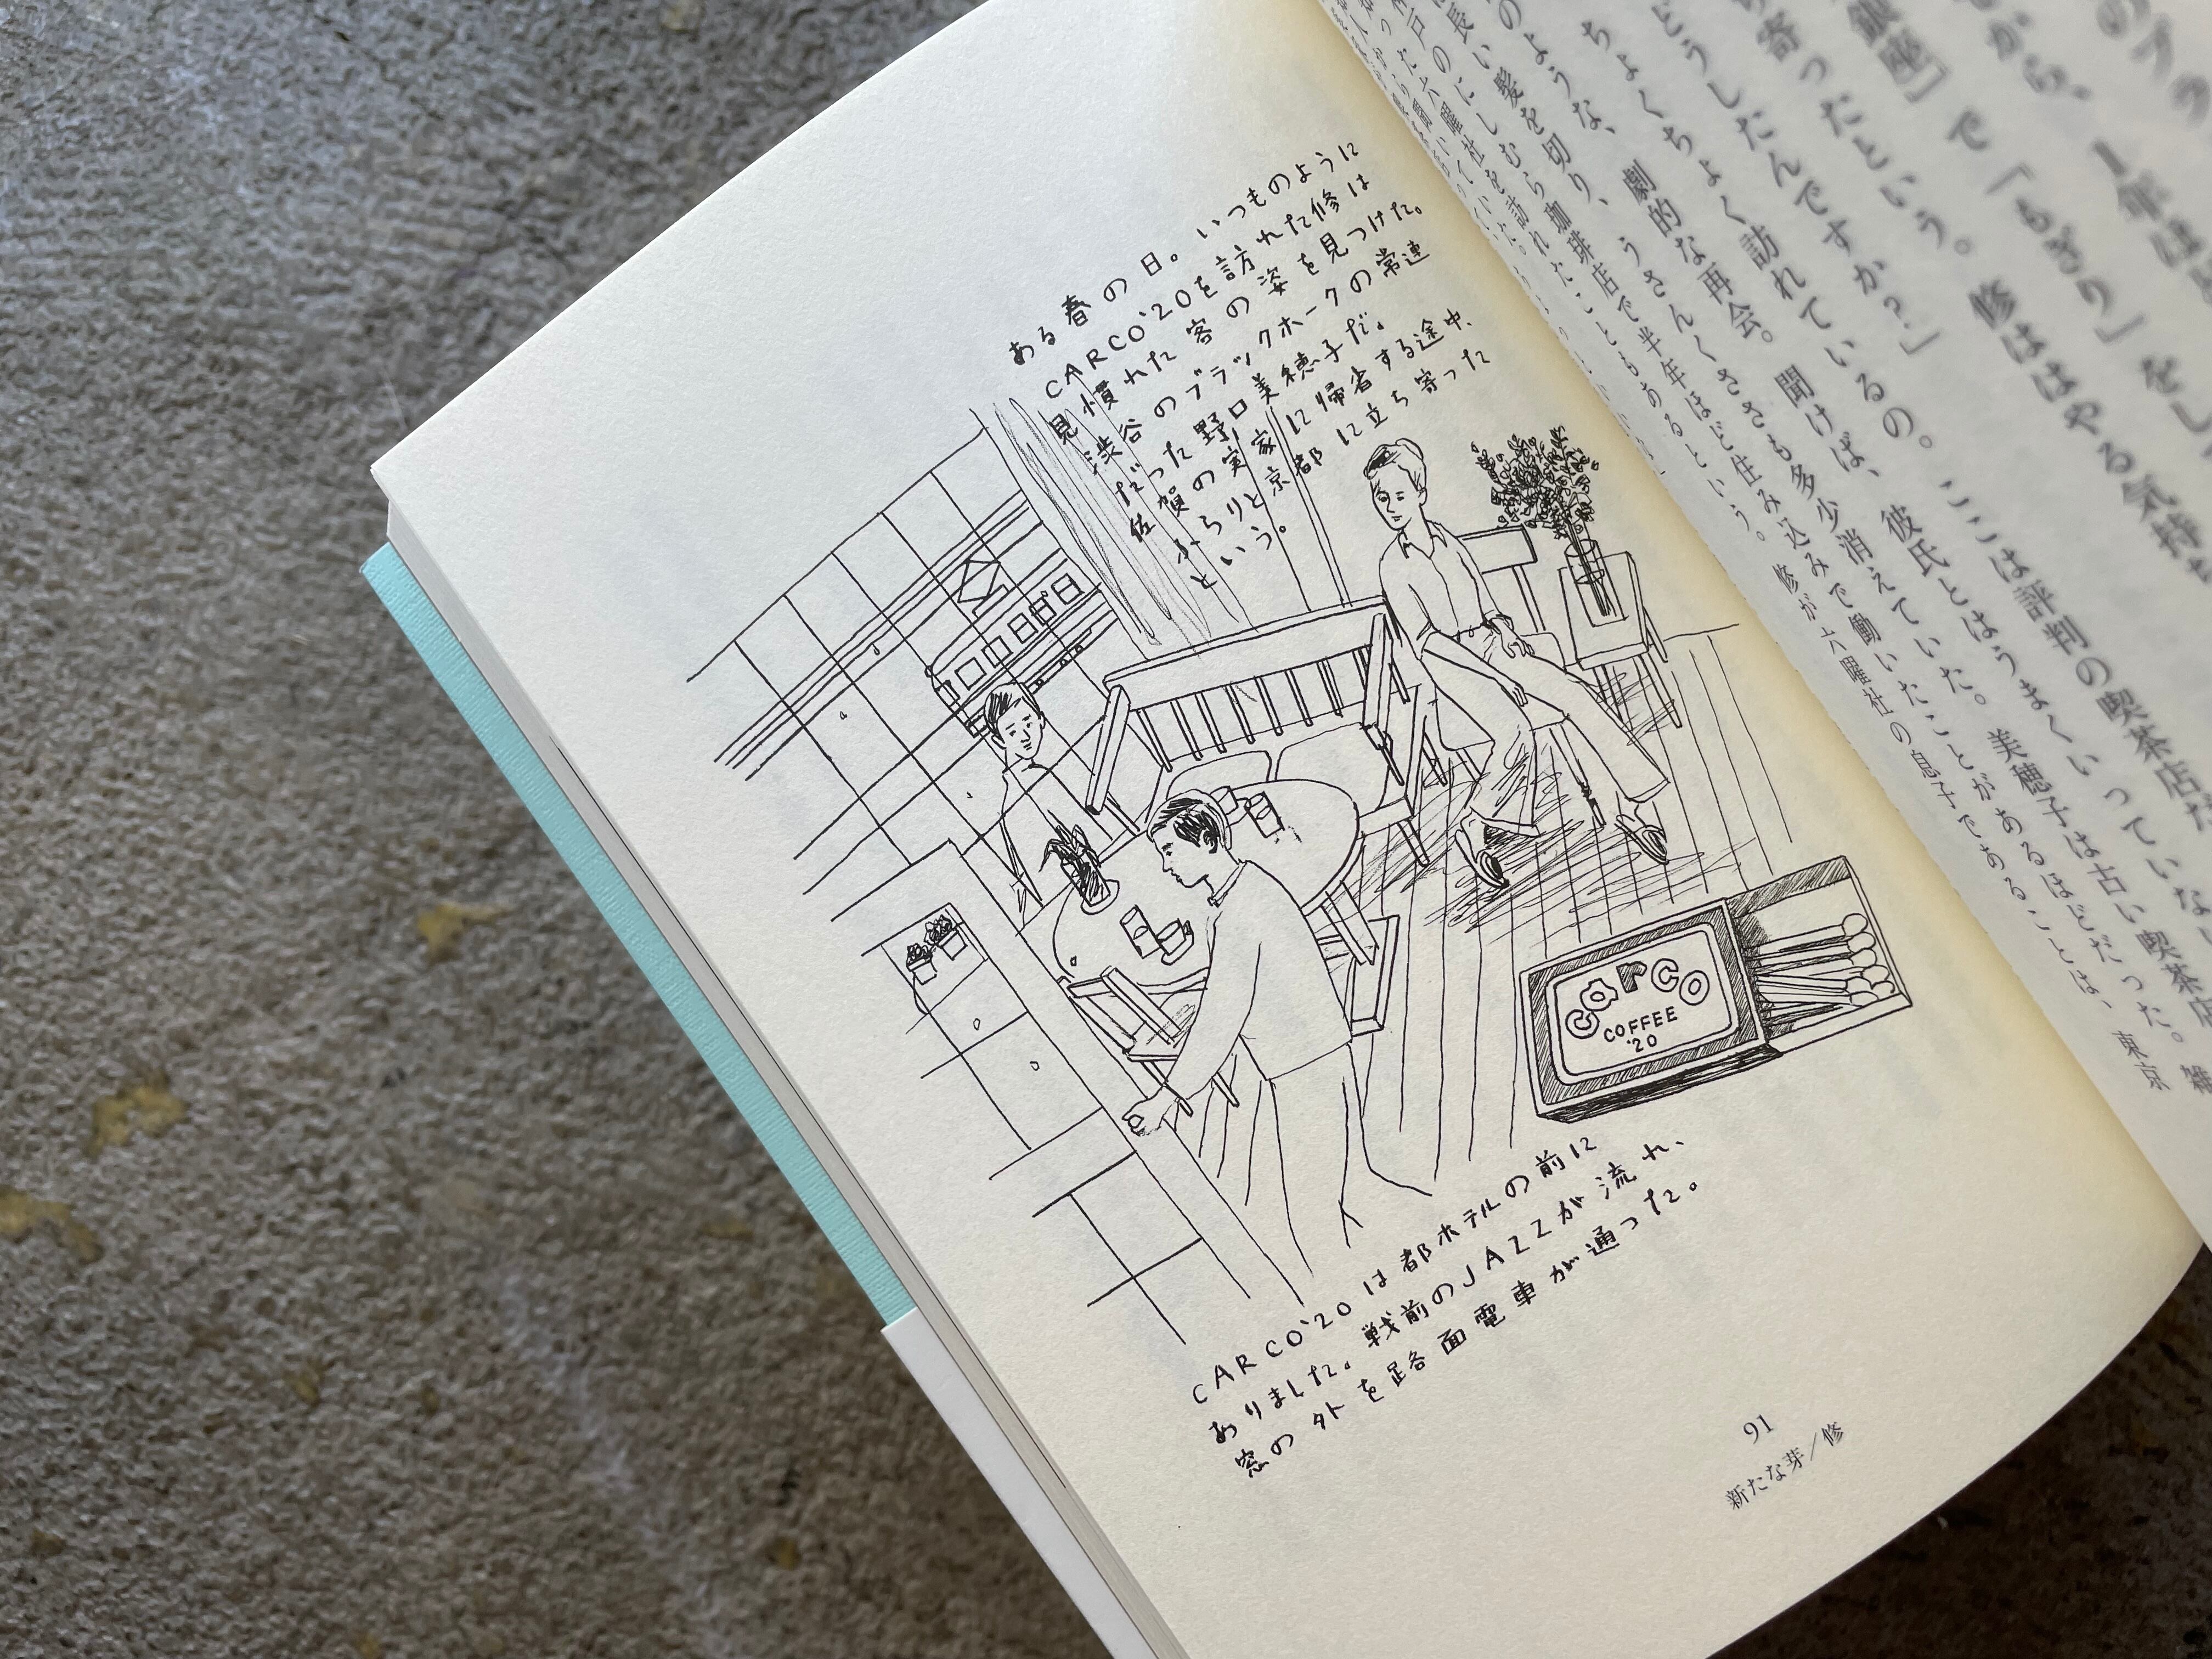 ある春の日。いつものように
CARCO'20を訪れた修は
見慣れた客の姿を見つけた。
渋谷のブラックホークの常連
だった野口美穂子だ。
佐賀の実家に帰省する途中、
ふらりと京都に立ち寄った
という。
carco
COFFEE
'20
CARCO'20は都ホテルの前に
ありました。戦前のJAZZが流れ、
窓の外を路面電車が通った。
91
新たな芽／修
から、1年は
銀座」で「もぎり」をし
寄ったという。修ははやる気持
どうしたんですか？」
ちょくちょく訪れているの。ここは評判の喫茶店だ
のような、劇的な再会。聞けば、彼氏とはうまくいっていない
長い髪を切り、うさんくささも多少消えていた。美穂子は古い喫茶店
のにしむら珈琲店で半年ほど住み込みで働いたことがあるほどだった。
った六曜社を訪れたこともあるという。修が六曜社の息子であることは、東京